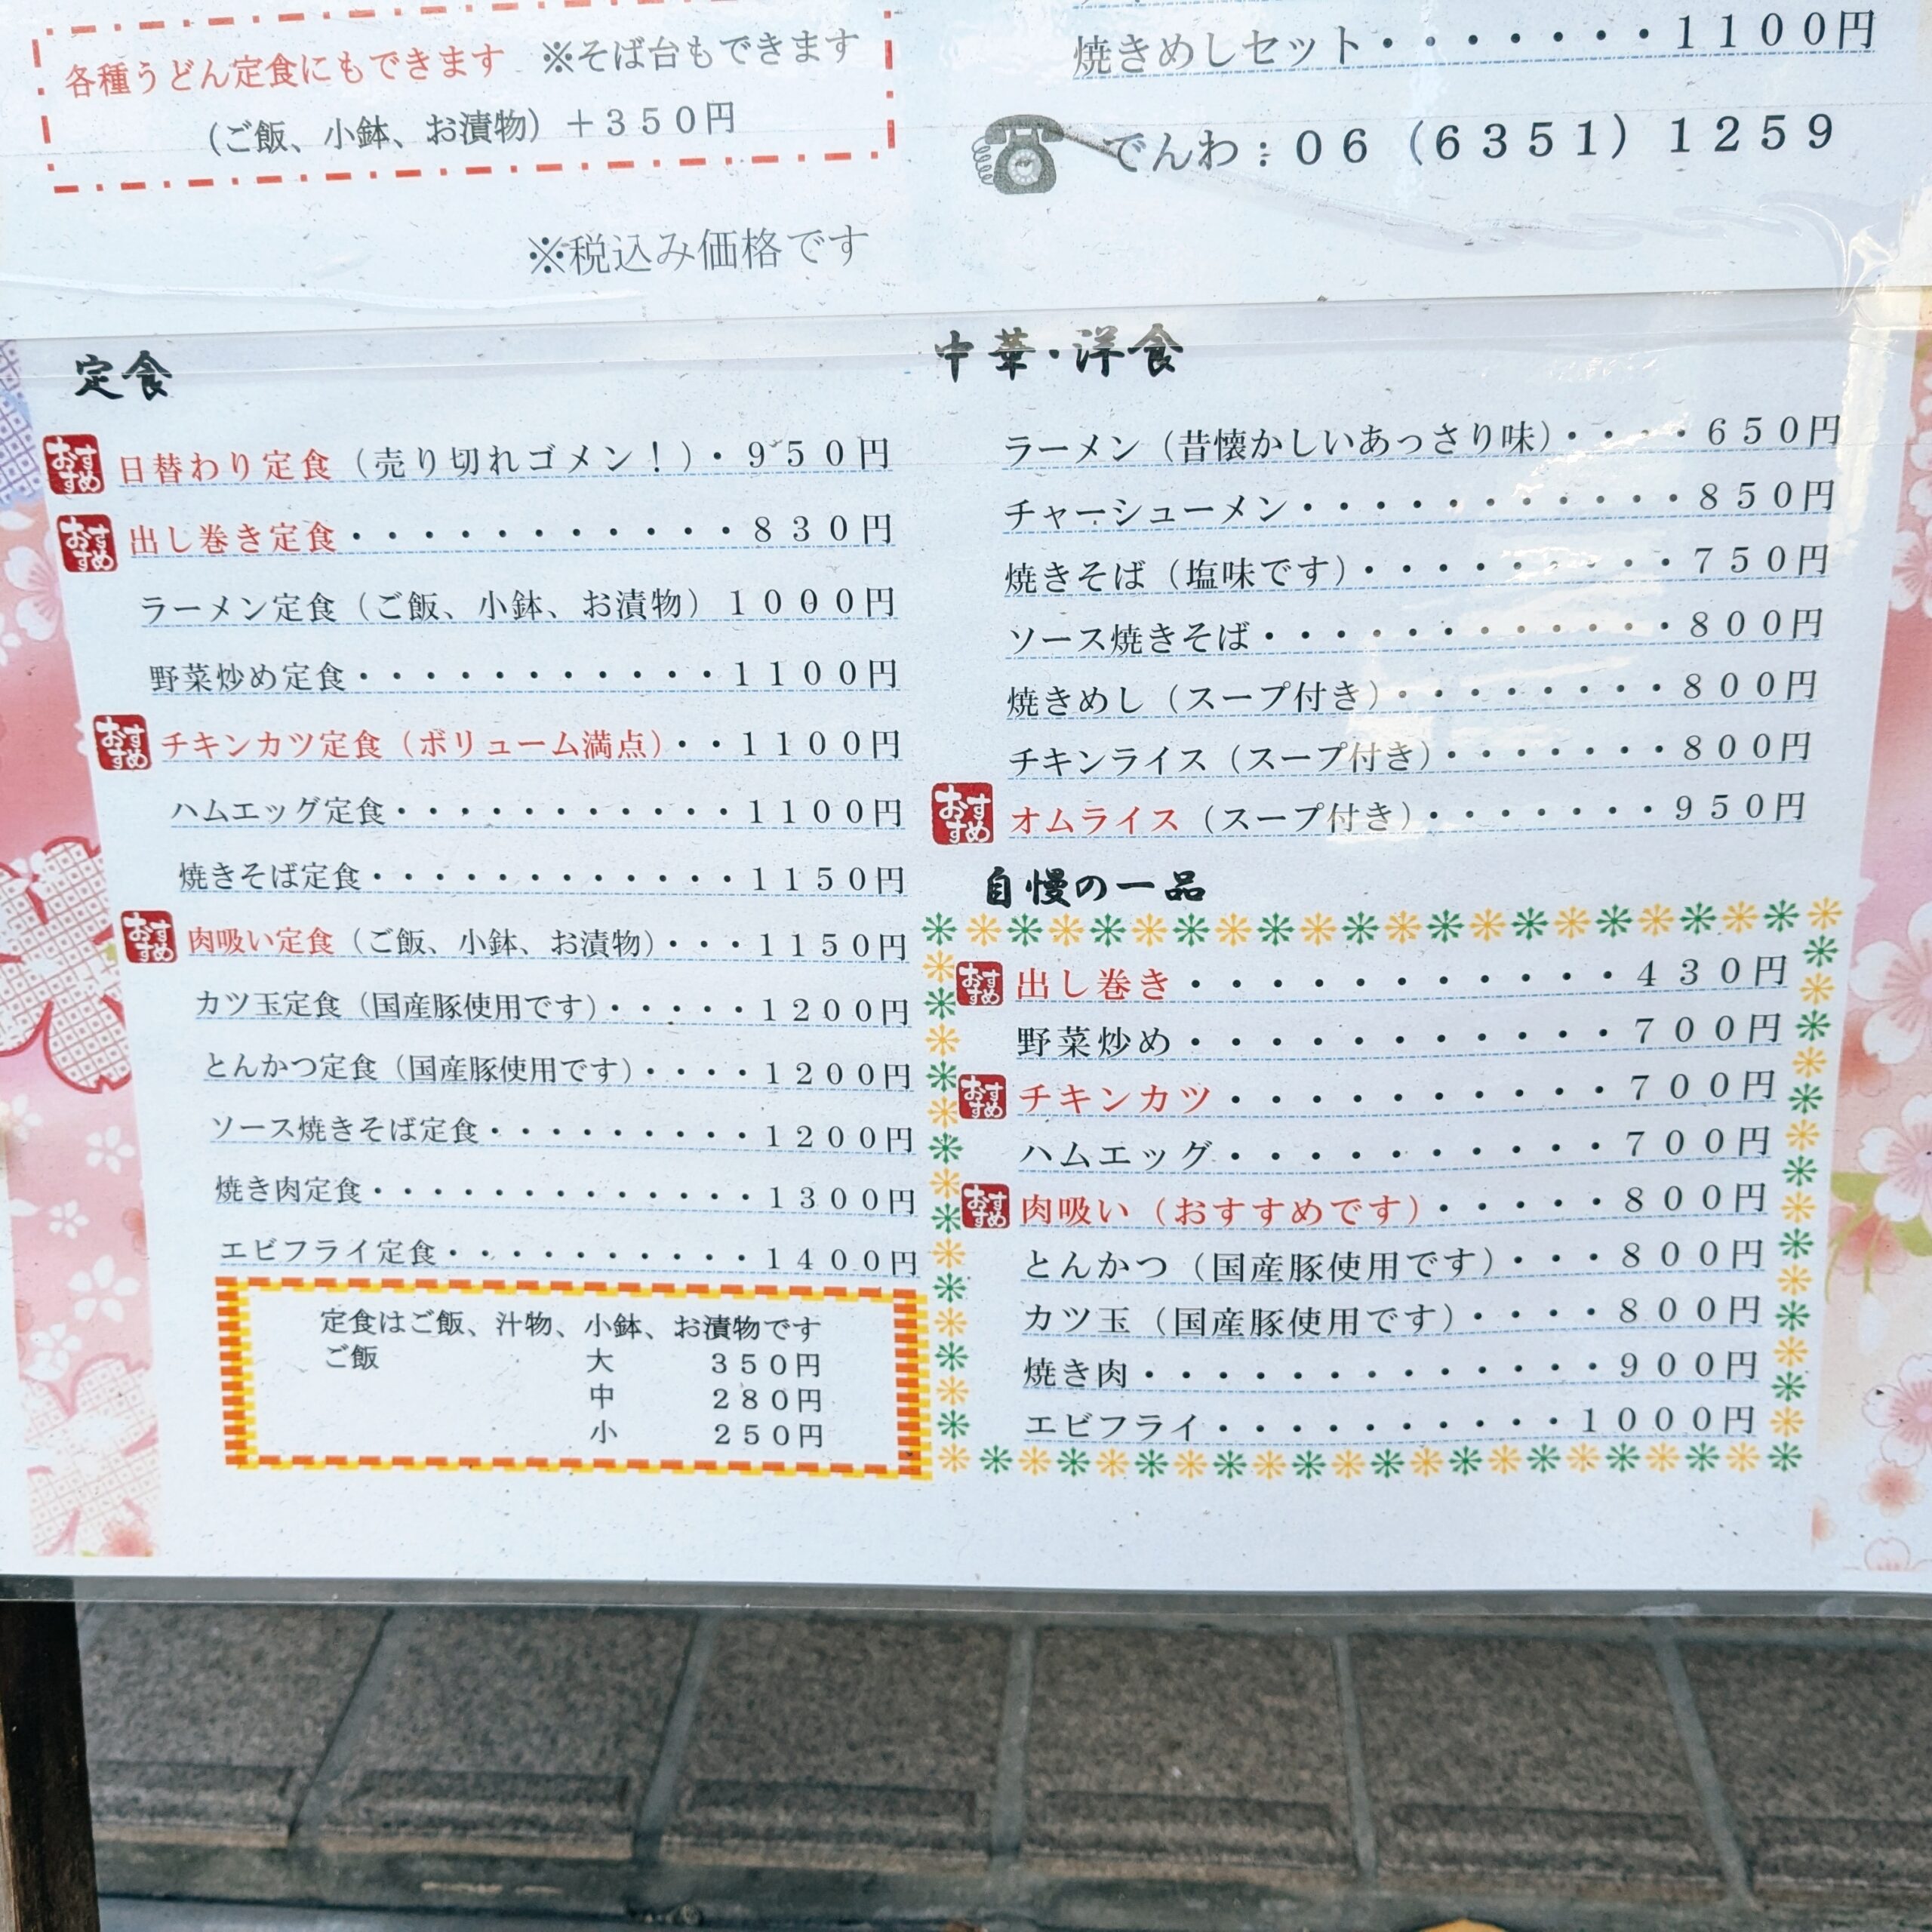 各種うどん定食にもできます ※そば台もできます
(ご飯、小鉢、お漬物)+350円
※税込み価格です
焼きめしセット・・・・・・・・1100円
でんわ：06(6351)1259
定食
おすすめ 日替わり定食（売り切れゴメン！）・950円
おすすめ 出し巻き定食・・・・・・・・・・・・830円
ラーメン定食（ご飯、小鉢、お漬物）1000円
野菜炒め定食・・・・・・・・・・・1100円
おすすめ チキンカツ定食（ボリューム満点）・・1100円
ハムエッグ定食・・・・・・・・・・・1100円
焼きそば定食・・・・・・・・・・・・1150円
おすすめ 肉吸い定食（ご飯、小鉢、お漬物）・・・1150円
カツ玉定食（国産豚使用です）・・・・・1200円
とんかつ定食（国産豚使用です）・・・・1200円
ソース焼きそば定食・・・・・・・・・1200円
焼き肉定食・・・・・・・・・・・・・1300円
エビフライ定食・・・・・・・・・・1400円
定食はご飯、汁物、小鉢、お漬物です
ご飯 大 350円
中 280円
小 250円
中華・洋食
ラーメン（昔懐かしいあっさり味）・・・・650円
チャーシューメン・・・・・・・・・・・850円
焼きそば（塩味です）・・・・・・・・・750円
ソース焼きそば・・・・・・・・・・・・800円
焼きめし（スープ付き）・・・・・・・・800円
チキンライス（スープ付き）・・・・・・・800円
おすすめ オムライス（スープ付き）・・・・・・・950円
自慢の一品
おすすめ 出し巻き・・・・・・・・・・・・430円
野菜炒め・・・・・・・・・・・・700円
おすすめ チキンカツ・・・・・・・・・・・700円
ハムエッグ・・・・・・・・・・・700円
おすすめ 肉吸い（おすすめです）・・・・・800円
とんかつ（国産豚使用です）・・・800円
カツ玉（国産豚使用です）・・・・800円
焼き肉・・・・・・・・・・・・・900円
エビフライ・・・・・・・・・・・1000円